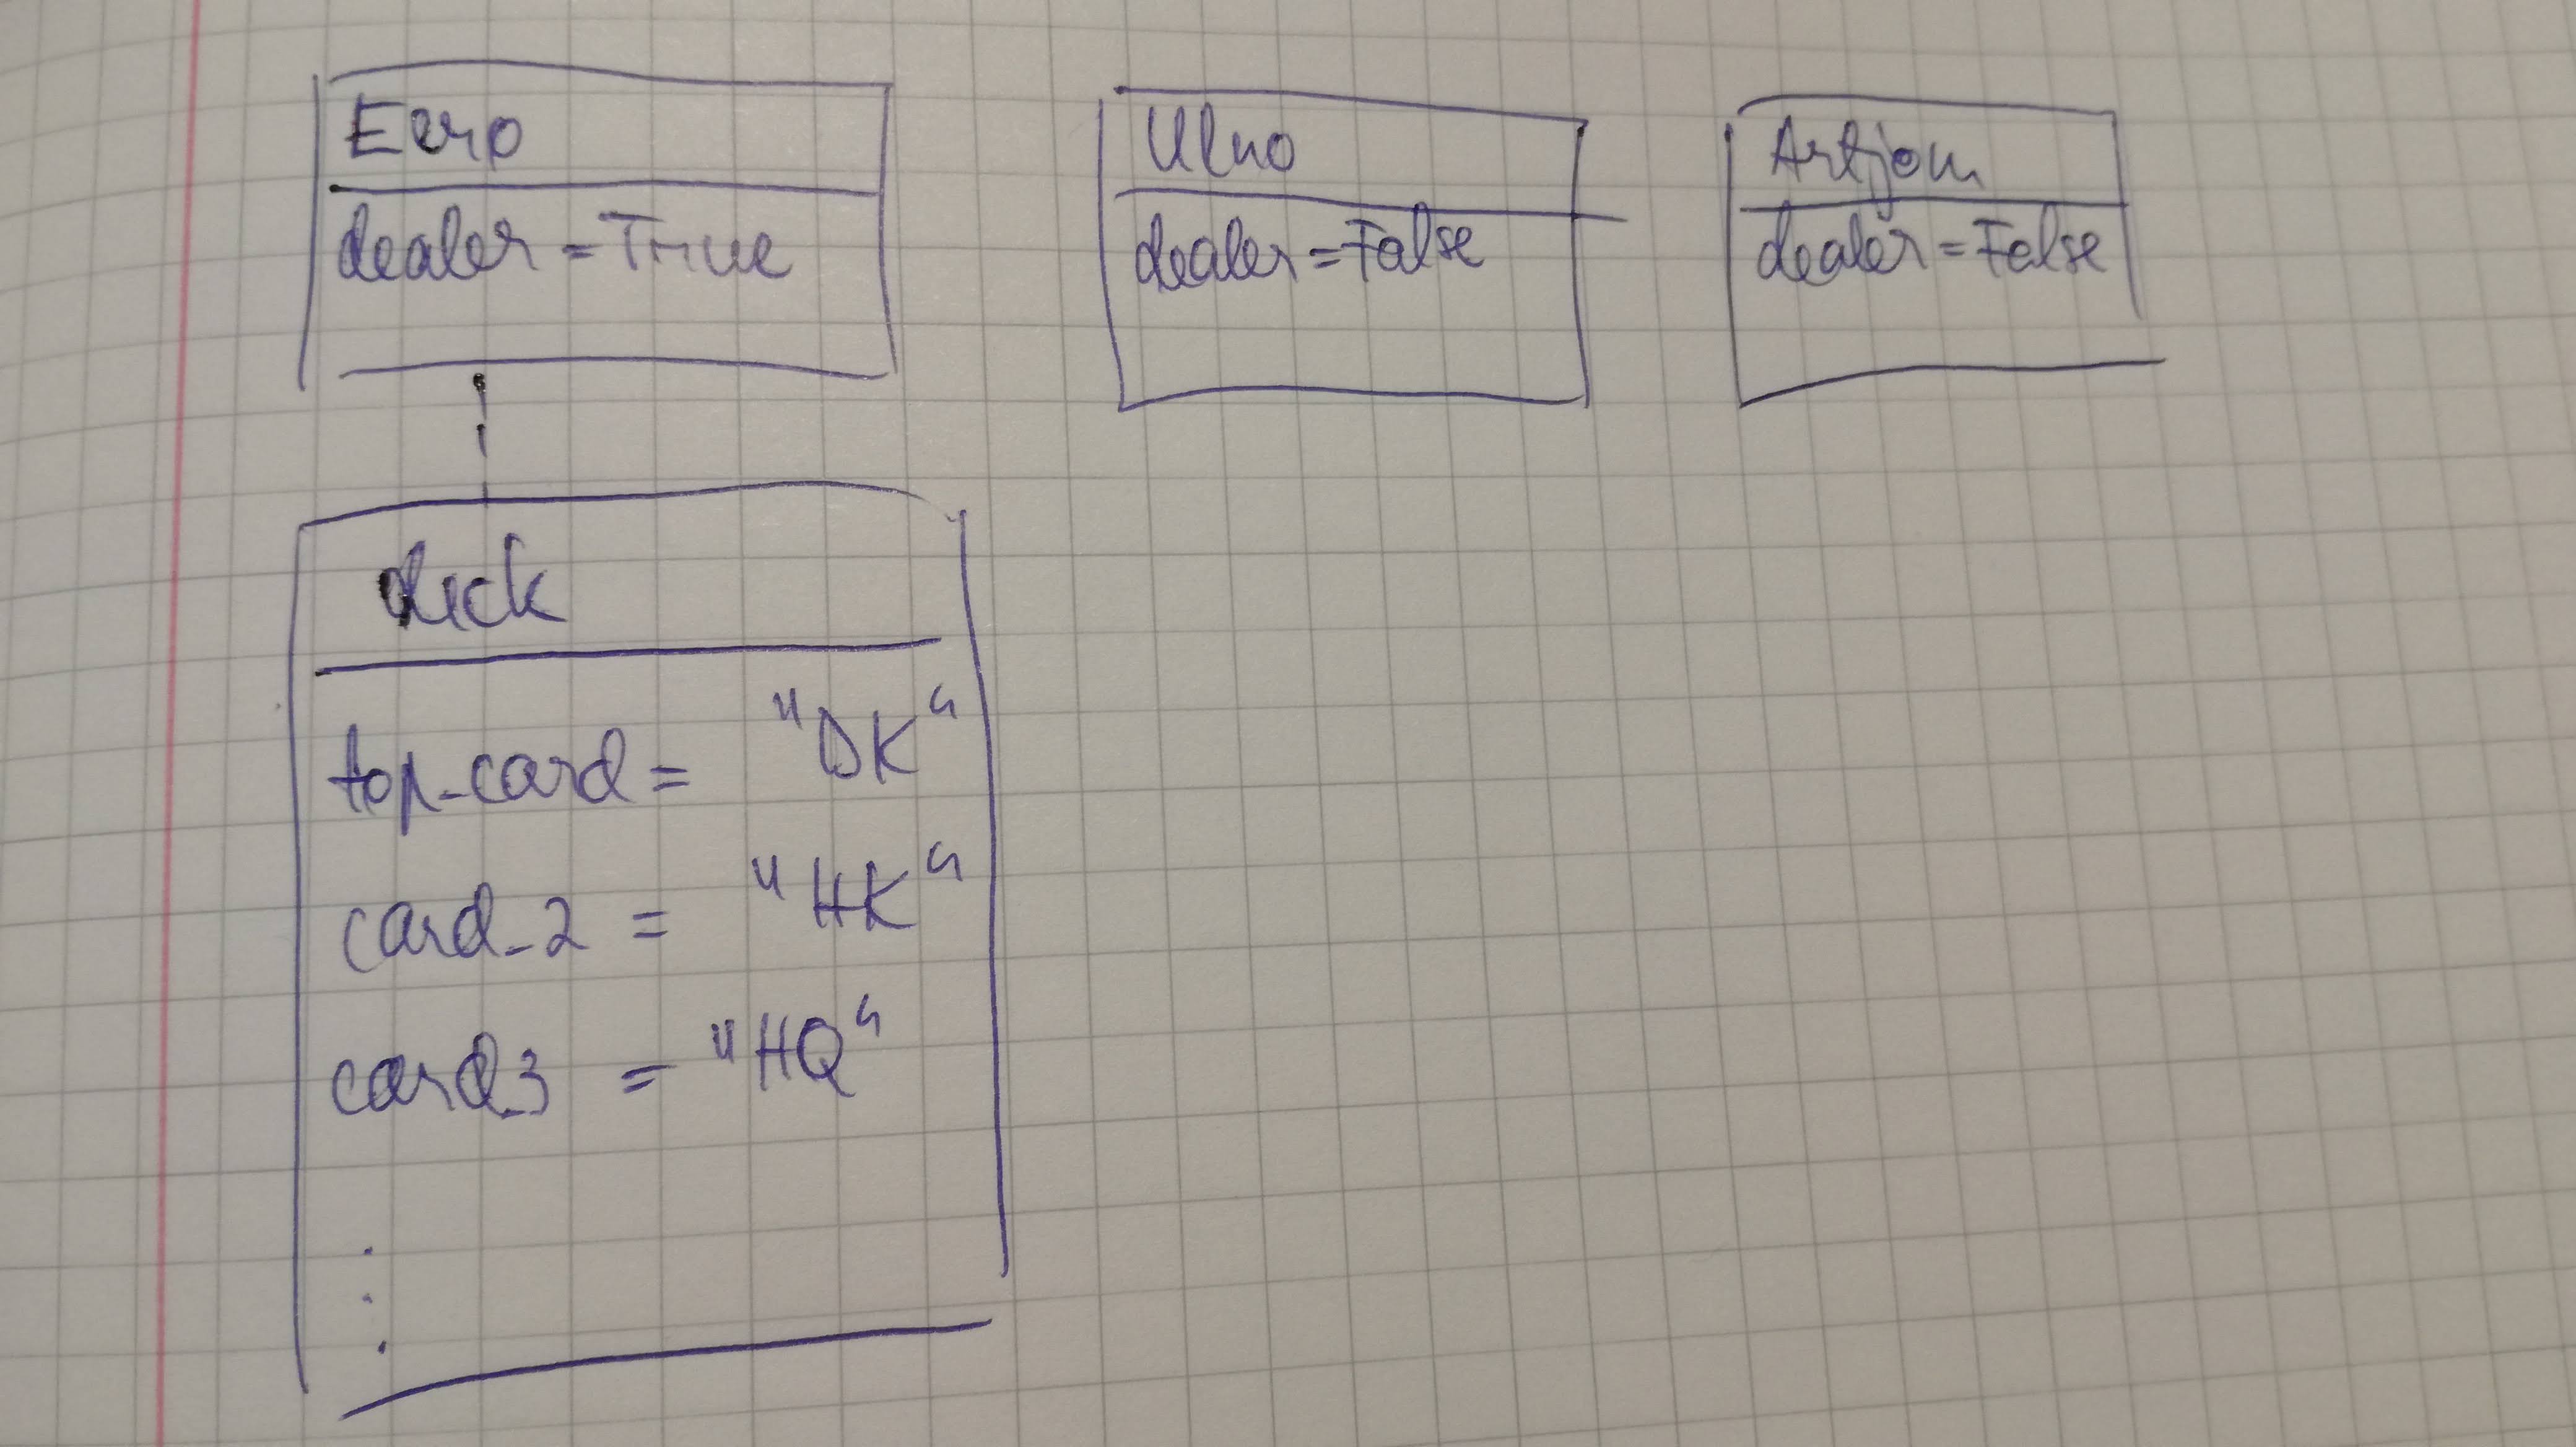 Eero
dealer = True
Ulno
dealer = False
Artjom
dealer = False
deck
top_card = "DK"
card_2 = "HK"
card_3 = "HQ"
.
.
.